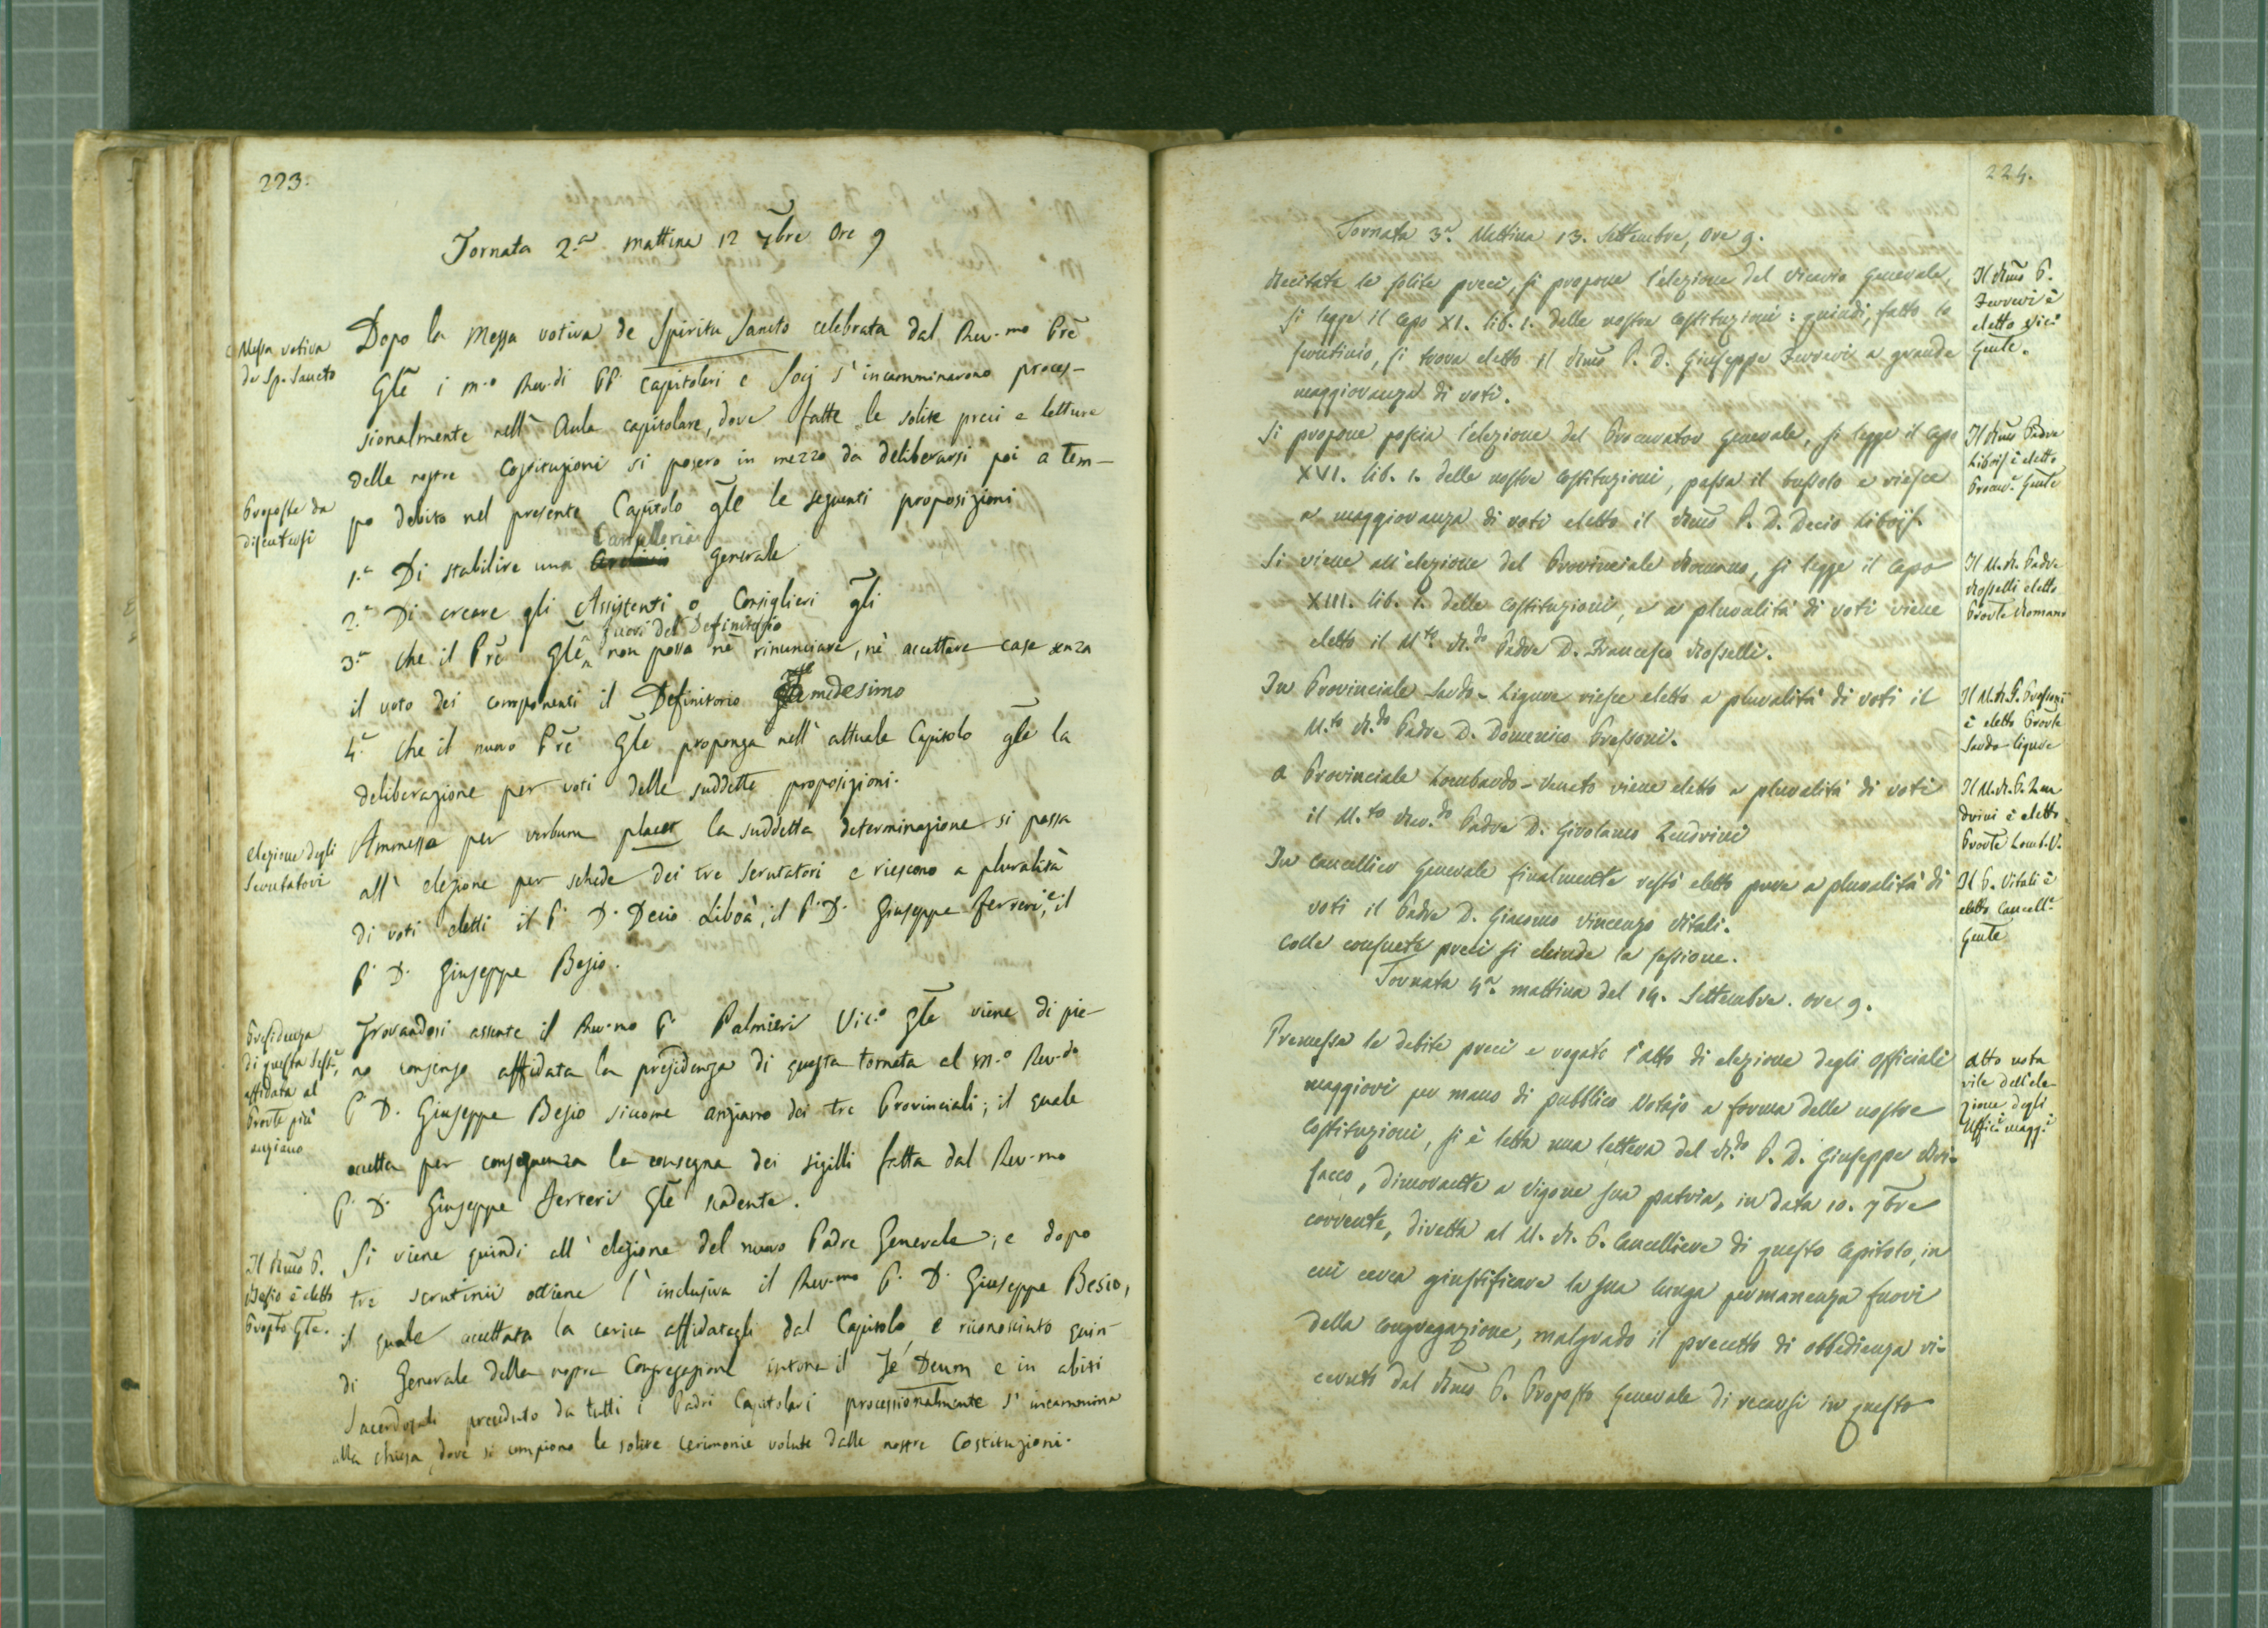 223.
Tornata 2.a mattina 12 7bre Ore 9
Messa votiva
de Sp. Sancto
Dopo la Messa votiva de Spiritu Sancto celebrata dal Rev.mo Prẽ
Glẽ i m.o Rev.di PP. Capitolari e Socj s'incamminarono proces-
sionalmente nell'Aula capitolare, dove fatte le solite preci e letture
delle nostre Costituzioni si posero in mezzo da deliberarsi poi a tem-
Proposte da
discutersi
po debito nel presente Capitolo glẽ le seguenti proposizioni
Cancelleria
1.a Di stabilire una generale
2.a Di creare gli Assistenti o Consiglieri glĩ
fuori del Definitorio
3.a Che il Prẽ Glẽ non possa nè rinunciare, nè accettare case senza
il voto dei componenti il Definitorio medesimo
4.a Che il nuovo Prẽ Glẽ proponga nell'attuale Capitolo glẽ la
deliberazione per voti delle suddette proposizioni.
Elezione degli
Scrutatori
Ammessa per verbum placet la suddetta determinazione si passa
all'elezione per schede dei tre Scrutatori e riescono a pluralità
di voti eletti il P. D. Decio Liboà, il P. D. Giuseppe Ferreri, e il
P. D. Giuseppe Besio.
Presidenza
di questa Sess.e
affidata al
Provle più
anziano
Trovandosi assente il Rev.mo P. Palmieri Vic.o Glẽ viene di pie-
no consenso affidata la presidenza di questa tornata al m.o Rev.do
P. D. Giuseppe Besio siccome anziano dei tre Provinciali; il quale
accetta per conseguenza la consegna dei sigilli fatta dal Rev.mo
P. D. Giuseppe Ferreri Glẽ scadente.
Il Rmo P.
Besio è eletto
Propto Gle.
Si viene quindi all'elezione del nuovo Padre Generale; e dopo
tre scrutinii ottiene l'inclusiva il Rev.mo P. D. Giuseppe Besio,
il quale accettata la carica affidatagli dal Capitolo, e riconosciuto quin-
di Generale della nostra Congregazione intona il Te Deum e in abiti
Sacerdotali preceduto da tutti i Padri Capitolari processionalmente s'incammina
alla chiesa, dove si compiono le solite cerimonie volute dalle nostre Costituzioni.
224.
Tornata 3.a Mattina 13. Settembre, Ore 9.
Recitate le solite preci, si propone l'elezione del Vicario Generale,
si legge il Capo XI. lib. 1. delle nostre Costituzioni: quindi, fatto lo
scrutinio, si trova eletto il Rmo P. D. Giuseppe Ferreri a grande
maggioranza di voti.
Il Rmo P.
Ferreri è
eletto Vic.o
Genle.
Si propone poscia l'elezione del Procurator Generale, si legge il Capo
XVI. lib. 1. delle nostre Costituzioni, passa il bussolo e riesce
a maggioranza di voti eletto il Rmo P. D. Decio Libois.
Il Rmo Padre
Libois è eletto
Procur.e Genle
Si viene all'elezione del Provinciale Romano, si legge il Capo
XIII. lib. 1. delle Costituzioni, e a pluralità di voti viene
eletto il M.to R.do Padre D. Francesco Rosselli.
Il M. R. Padre
Rosselli eletto
Provle Romano
In Provinciale Sardo-Ligure riesce eletto a pluralità di voti il
M.to R.do Padre D. Domenico Pressoni.
Il M. R. P. Pressoni
è eletto Provle
Sardo-ligure
A Provinciale Lombardo-Veneto viene eletto a pluralità di voti
il M.to Rev.do Padre D. Girolamo Zendrini
Il M. R. P. Zen
drini è eletto
Provle Lomb. V.
In Cancelliere Generale finalmente restò eletto pure a pluralità di
voti il Padre D. Giacomo Vincenzo Vitali.
Colle consuete preci si chiude la sessione.
Il P. Vitali è
eletto Cancell.e
Genle
Tornata 4.a mattina del 14. Settembre. ore 9.
Premesse le debite preci e rogato l'atto di elezione degli Officiali
maggiori per mano di pubblico Notajo a forma delle nostre
Costituzioni, si è letta una lettera del R.do P. D. Giuseppe Bri-
sacco, dimorante a Vigone sua patria, in data 10. 7bre
corrente, diretta al M. R. P. Cancelliere di questo Capitolo, in
cui cerca giustificare la sua lunga permanenza fuori
della Congregazione, malgrado il precetto di obbedienza ri-
cevuto dal Rmo P. Proposto Generale di recarsi in questo
Atto nota
rile dell'ele-
zione degli
Uffic.i magg.i